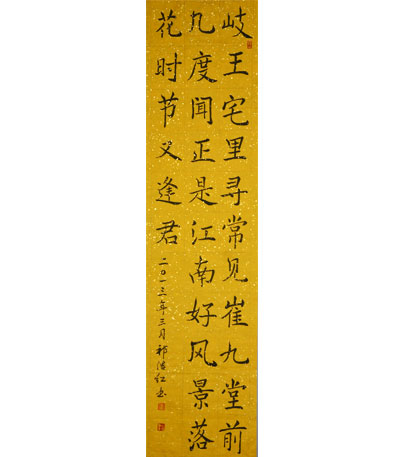 岐王宅里寻常见崔九堂前
几度闻正是江南好风景落
花时节又逢君
二〇一三年三月祁红书